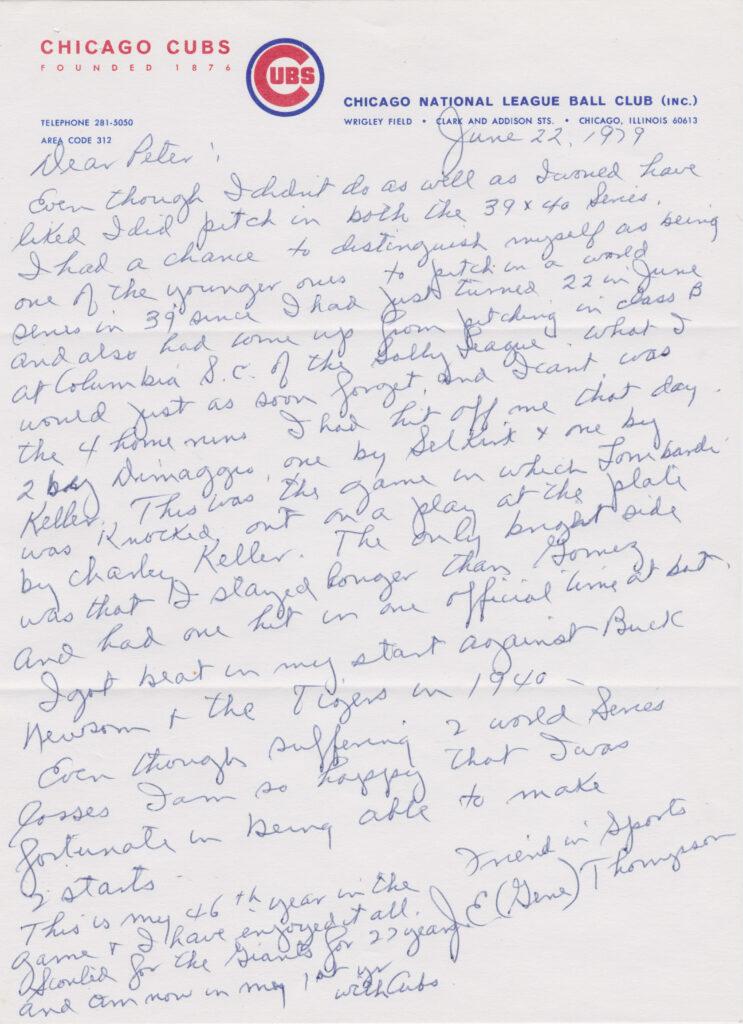 CHICAGO CUBS
FOUNDED 1876
CUBS
CHICAGO NATIONAL LEAGUE BALL CLUB (INC.)
TELEPHONE 281-5050
WRIGLEY FIELD • CLARK AND ADDISON STS. • CHICAGO, ILLINOIS 60613
AREA CODE 312
June 22, 1979
Dear Peter:
Even though I didn't do as well as I would have
liked I did pitch in both the 39 & 40 Series.
I had a chance to distinguish myself as being
one of the younger ones to pitch in a world
series in 39 since I had just turned 22 in June
and also had come up from pitching in class B
at Columbia S.C. of the Sally League. What I
would just as soon forget, and I cant, was
the 4 home runs I had hit off me that day.
2 by Dimaggio, one by Selkirk & one by
Keller. This was the game in which Lombardi
was knocked out on a play at the plate
by Charley Keller. The only bright side
was that I stayed longer than Gomez
and had one hit in one official time at bat.
I got beat in my start against Buck
Newsom & the Tigers in 1940 –
Even though suffering 2 world Series
losses I am so happy that I was
fortunate in being able to make
2 starts.
Friend in Sports
J E (Gene) Thompson
This is my 46th year in the
game & I have enjoyed it all.
Scouted for the Giants for 27 years
and am now in my 1st yr
with Cubs.